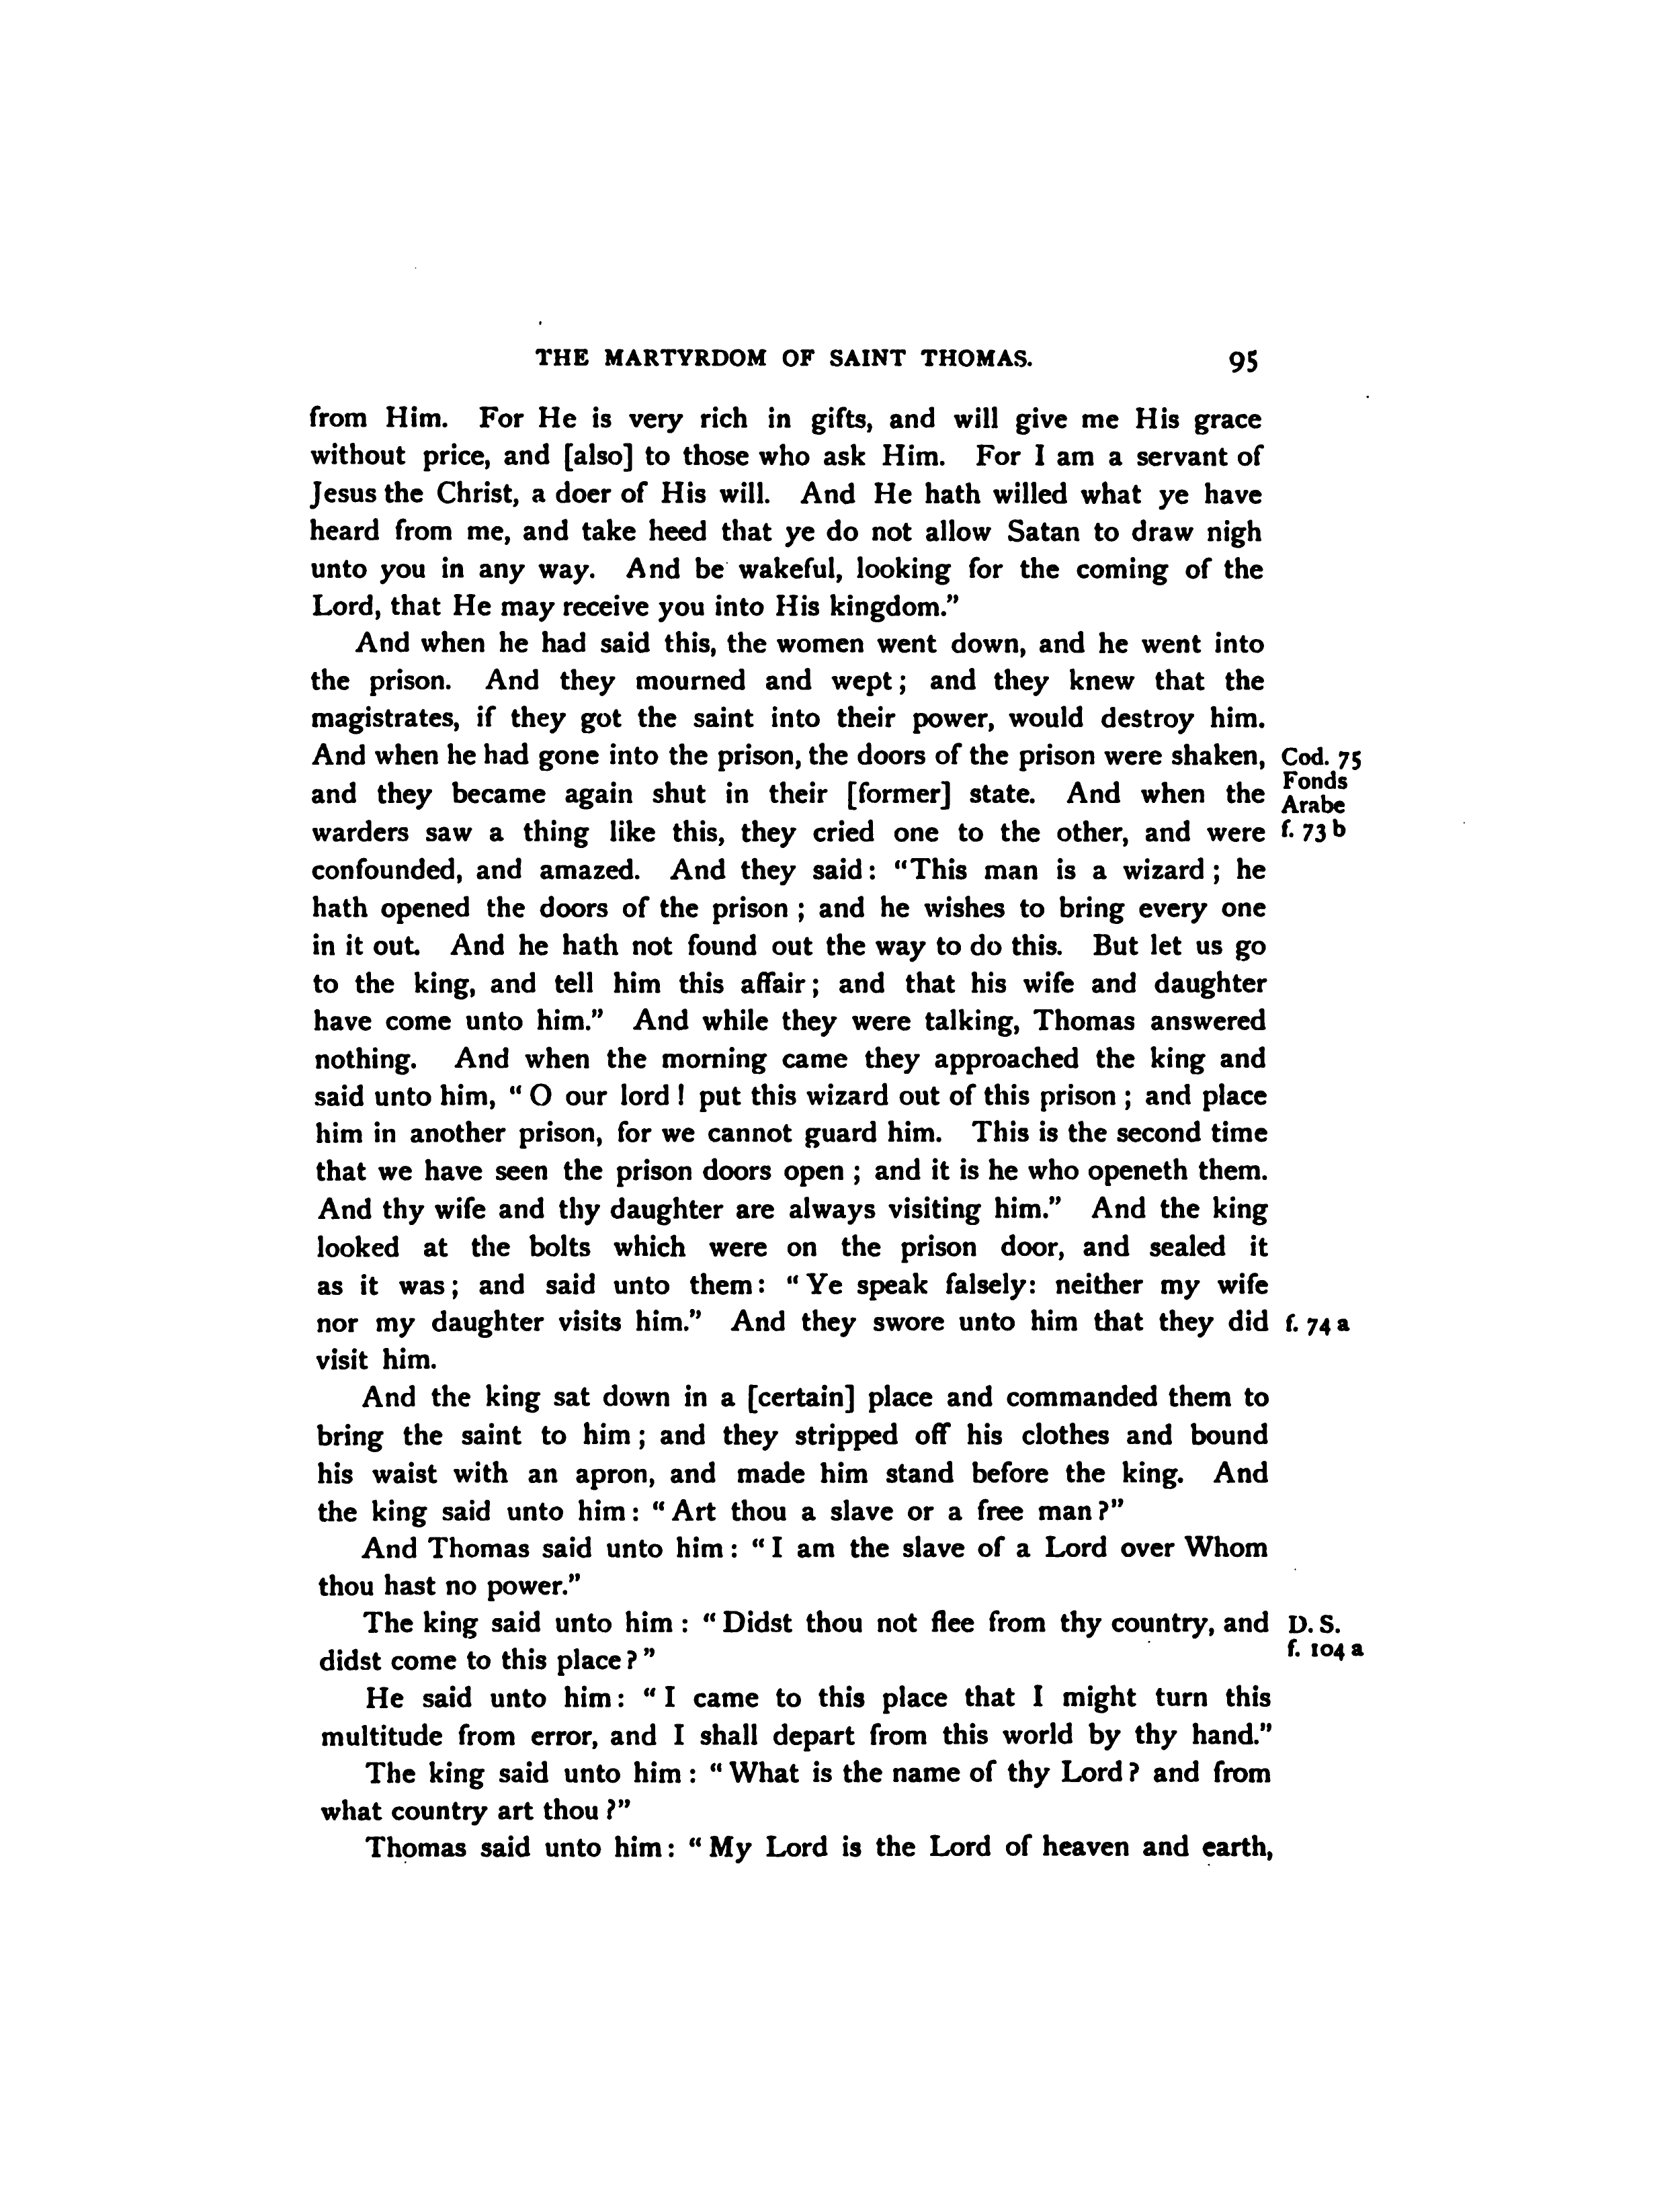 THE MARTYRDOM OF SAINT THOMAS. 95
from Him. For He is very rich in gifts, and will give me His grace
without price, and [also] to those who ask Him. For I am a servant of
Jesus the Christ, a doer of His will. And He hath willed what ye have
heard from me, and take heed that ye do not allow Satan to draw nigh
unto you in any way. And be wakeful, looking for the coming of the
Lord, that He may receive you into His kingdom."
And when he had said this, the women went down, and he went into
the prison. And they mourned and wept; and they knew that the
magistrates, if they got the saint into their power, would destroy him.
And when he had gone into the prison, the doors of the prison were shaken,
Cod. 75
Fonds
Arabe
f. 73 b
and they became again shut in their [former] state. And when the
warders saw a thing like this, they cried one to the other, and were
confounded, and amazed. And they said: "This man is a wizard; he
hath opened the doors of the prison; and he wishes to bring every one
in it out. And he hath not found out the way to do this. But let us go
to the king, and tell him this affair; and that his wife and daughter
have come unto him." And while they were talking, Thomas answered
nothing. And when the morning came they approached the king and
said unto him, "O our lord! put this wizard out of this prison; and place
him in another prison, for we cannot guard him. This is the second time
that we have seen the prison doors open; and it is he who openeth them.
And thy wife and thy daughter are always visiting him." And the king
looked at the bolts which were on the prison door, and sealed it
as it was; and said unto them: "Ye speak falsely: neither my wife
nor my daughter visits him." And they swore unto him that they did
f. 74 a
visit him.
And the king sat down in a [certain] place and commanded them to
bring the saint to him; and they stripped off his clothes and bound
his waist with an apron, and made him stand before the king. And
the king said unto him: "Art thou a slave or a free man?"
And Thomas said unto him: "I am the slave of a Lord over Whom
thou hast no power."
The king said unto him: "Didst thou not flee from thy country, and
D. S.
f. 104 a
didst come to this place?"
He said unto him: "I came to this place that I might turn this
multitude from error, and I shall depart from this world by thy hand."
The king said unto him: "What is the name of thy Lord? and from
what country art thou?"
Thomas said unto him: "My Lord is the Lord of heaven and earth,